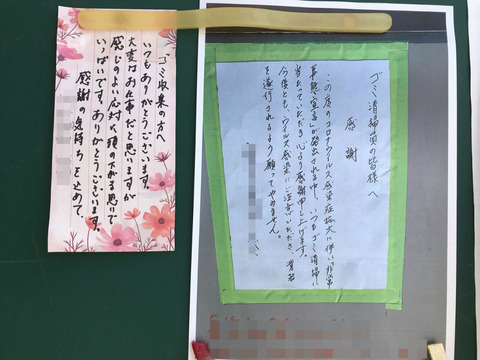 ゴミ清掃員の皆様へ
感謝
この度のコロナウイルス感染症拡大に伴い「非常
事態宣言」が発出される中、いつもゴミ清掃に
当たっていただき心より感謝申し上げます。
今後とも、ウイルス感染にご注意いただき、業務
を遂行されるよう願ってやみません。
ゴミ収集の方へ
いつもありがとうございます。
大変なお仕事だと思いますが
感じのよい応対に頭のさがる思いで
いっぱいです。ありがとうございます。
感謝の気持ちを込めて。